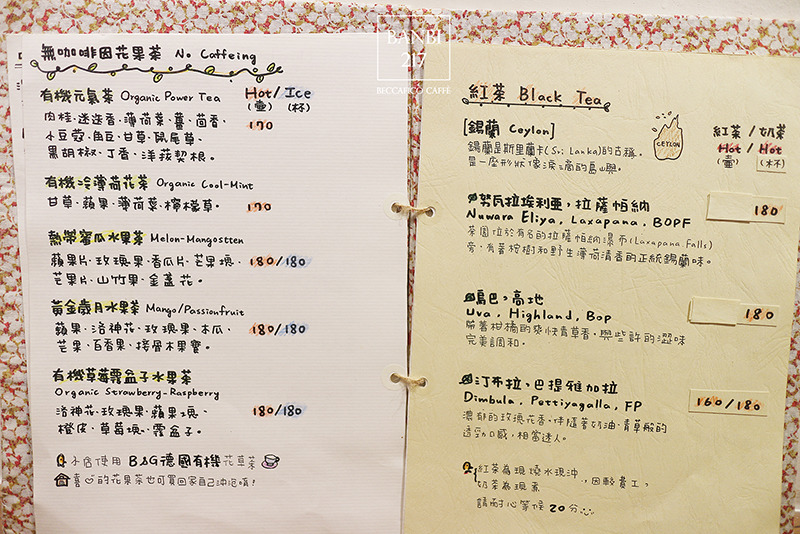 BANBI
217
BECCAFICO CAFFÉ
無咖啡因花果茶 No Caffeing
有機元氣茶 Organic Power Tea Hot/Ice
(壺) (杯)
肉桂、迷迭香、薄荷葉、薑、茴香、 170
小豆蔻、角豆、甘草、鼠尾草、
黑胡椒、丁香、洋菇契根。
有機冷薄荷花茶 Organic Cool-Mint
甘草、蘋果、薄荷葉、檸檬草。 170
熱帶蜜瓜水果茶 Melon-Mangostten
蘋果片、玫瑰果、香瓜片、芒果塊、 180/180
芒果片、山竹果、金盞花。
黃金歲月水果茶 Mango/Passionfruit
蘋果、洛神花、玫瑰果、木瓜、 180/180
芒果、百香果、接骨木果實。
有機草莓覆盆子水果茶
Organic Strawberry-Raspberry
洛神花、玫瑰果、蘋果塊、 180/180
橙皮、草莓塊、覆盆子。
本舍使用 B&G德國有機花草茶
喜 的花果茶也可買回家自己沖泡唷!
紅茶 Black Tea
[錫蘭 Ceylon] CEYLON 紅茶/奶茶
錫蘭是斯里蘭卡(Sri Lanka)的古稱 Hot/Hot
是一座形狀像淚滴的島嶼。 (壺) (杯)
努瓦拉埃利亞,拉薩帕納 180
Nuwara Eliya, Laxapana, BOPF
茶園位於有名的拉薩帕納瀑布(Laxapana Falls)
旁,有著桉樹和野生薄荷清香的正統錫蘭味。
烏巴,高地 180
Uva, Highland, Bop
帶著柑橘的爽快青草香,與些許的澀味
完美調和。
汀布拉,巴提雅加拉 160/180
Dimbula, Pettiyagalla, FP
濃郁的玫瑰花香,伴隨著奶油、青草般的
強勁口感,相當迷人。
紅茶為現燒水現沖
奶茶為現煮 ,因較費工,
請耐心等候 20分